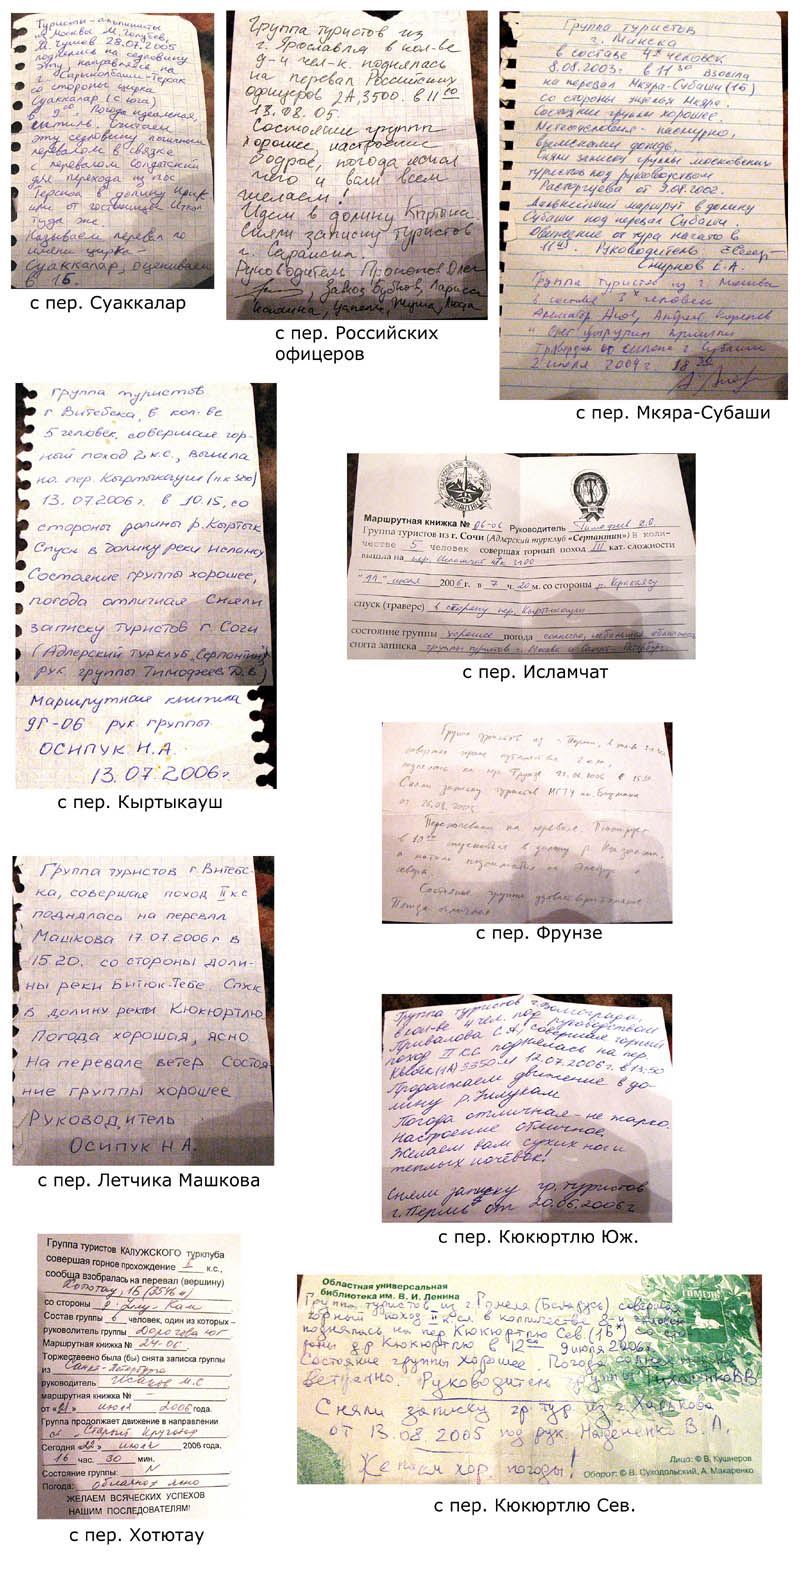 Туристы-альпинисты
г. Москвы М. Голубев,
М. Гущев 28.07.2005
поднялись на седловину
эту, направляясь на
г. Сарыколбаши-Терак
со стороны цирка
Суаккалар (с юга)
в 9:00. Погода идеальная,
штиль. Считаем
эту седловину логичным
перевалом в связке
с перевалом Солдатский
для перехода из пос.
Терскол в долину Ирик
или от гостиницы Иткол
туда же.
Называем перевал по
имени цирка -
Суаккалар, оцениваем
в 1Б.
с пер. Суаккалар
Группа туристов из
г. Ярославля в кол-ве
9-и чел-к. поднялась
на перевал Российских
офицеров 2А, 3500. в 11 00
13.08.05.
Состояние группы
хорошее, настроение
бодрое, погода ясная
чего и вам всем
желаем!
Идем в долину Кыртыка.
Сняли записку туристов
г. Саранска.
Руководитель Прокопов Олег
с пер. Российских
офицеров
Группа туристов
г. Минска
в составе 4х человек
8.08.2003г. в 11 30 взошла
на перевал Мкяра-Субаши (1б)
со стороны ущелья Мкяра.
Состояние группы хорошее.
Метеоусловия - пасмурно,
временами дождь.
Сняли записку группы московских
туристов под руководством
Расторгуева от 9.08.2002.
Дальнейший маршрут в долину
Субаши под перевал Субаши.
Движение от тура начато в
11 45. Руководитель
Смирнов Е.А.
Группа туристов из г. Москвы
в составе 3х человек
2 июля 2004г. 18 30
с пер. Мкяра-Субаши
Группа туристов
г. Витебска, в кол-ве
5 человек, совершая гор-
ный поход 2 к.с., вышла
на пер. Кыртыкауш (н.к 3200)
13.07.2006г. в 10.15, со
стороны долины р. Кыртык
Спуск в долину реки Исламсу
Состояние группы хорошее,
погода отличная Сняли
записку туристов г. Сочи
(Адлерский турклуб „Серпантин"
рук. группы Тимофеев Д.В.)
Маршрутная книжка
9Г-06 рук. группы
Осипук Н.А.
13.07.2006г.
с пер. Кыртыкауш
Маршрутная книжка № 06-06 Руководитель Тимофеев Д.В.
Группа туристов из г. Сочи (Адлерский турклуб «Серпантин») в коли-
честве 5 человек совершая горный поход III кат. сложности
вышла на пер. Исламчат
"11" июля 2006 г. в 7 ч. 20 м. со стороны р.
спуск (траверс) в сторону пер. Кыртыкауш
состояние группы хорошее погода солнечно, небольшая облачность
снята записка группы туристов г. Москва и Санкт-Петербург.
с пер. Исламчат
Группа туристов из г. Перми, в кол-ве
совершая горное путешествие 2 к.с.,
поднялась на пер. Фрунзе
Сняли записку туристов МГТУ им. Баумана
от 26.08.2005
Состояние группы удовлетворительное
Погода отличная
с пер. Фрунзе
Группа туристов г. Витебс-
ка, совершая поход II к.с
поднялась на перевал
Машкова 17.07.2006г в
15.20. со стороны доли-
ны реки Битюк-Тебе. Спуск
в долину реки Кюкюртлю
Погода хорошая, ясно
На перевале ветер Состоя-
ние группы хорошее
Руководитель
Осипук Н.А.
с пер. Летчика Машкова
Группа туристов г. Волгограда,
в кол-ве 4 чел. под руководством
Привалова С.А., совершая горный
поход II КС поднялась на пер.
(1А) 3350 м 12.07.2006г. в 13:50
Продолжаем движение в до-
лину р. Уллукам
Погода отличная - не жарко.
Настроение отличное.
Желаем вам сухих ног и
теплых ночёвок!
Сняли записку гр. туристов
г. Пермь от 20.06.2006г
с пер. Кюкюртлю Юж.
Группа туристов КАЛУЖСКОГО турклуба
совершая горное прохождение I к.с.,
сообща взобралась на перевал (вершину)
Хотютау, 1Б (3546 м)
со стороны р. Уллу-Кам
Состав группы 6 человек, один из которых –
руководитель группы
Маршрутная книжка № 24-06.
Торжественно была (бы) снята записка группы
из Санкт-Петербурга
руководитель Исаков М.С.
маршрутная книжка № –
от «21» июля 2006 года.
Группа продолжает движение в направлении
Старый Кругозор
Сегодня «22» июля 2006 года,
16 час. 30 мин.
Состояние группы: N
Погода: облачно, ясно
ЖЕЛАЕМ ВСЯЧЕСКИХ УСПЕХОВ
НАШИМ ПОСЛЕДОВАТЕЛЯМ!
с пер. Хотютау
Областная универсальная
библиотека им. В. И. Ленина
ГОМЕЛЬ
Группа туристов из г. Гомеля (Беларусь) совершая
горный поход II к.сл. в количестве 8-и человек
поднялась на пер Кюкюртлю Сев. (1Б*) со сто-
роны д.р Кюкюртлю в 12 00 9 июля 2006г.
Состояние группы хорошее. Погода солнечная
Ветрено. Руководитель группы Тихоненко В.В
Сняли записку гр. тур из г. Харькова
от 13.08.2005 под рук. Надененко В. Л.
Желаем хор. погоды!
Лицо: © В. Кушнеров
Оборот: © В. Суходольский, А. Макаренко
с пер. Кюкюртлю Сев.